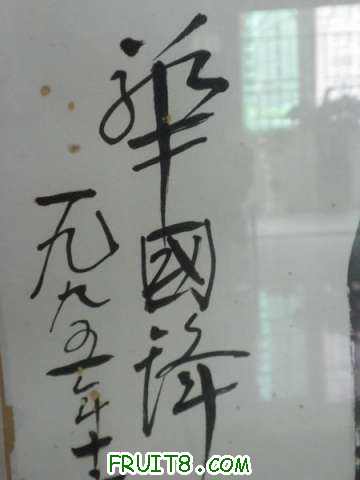 華國鋒
一九九五年十
FRUIT8.COM